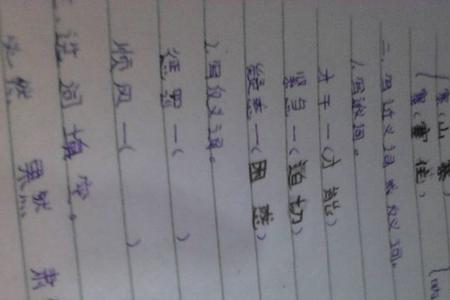 (山寨)
二、写近义词或反义词。
1.写近义词。
才干—(才能)
紧急—(迫切)
疑惑—(困惑)
2.写反义词。
惩罚—( )
顺风—( )
、选词填空。
果然 肃